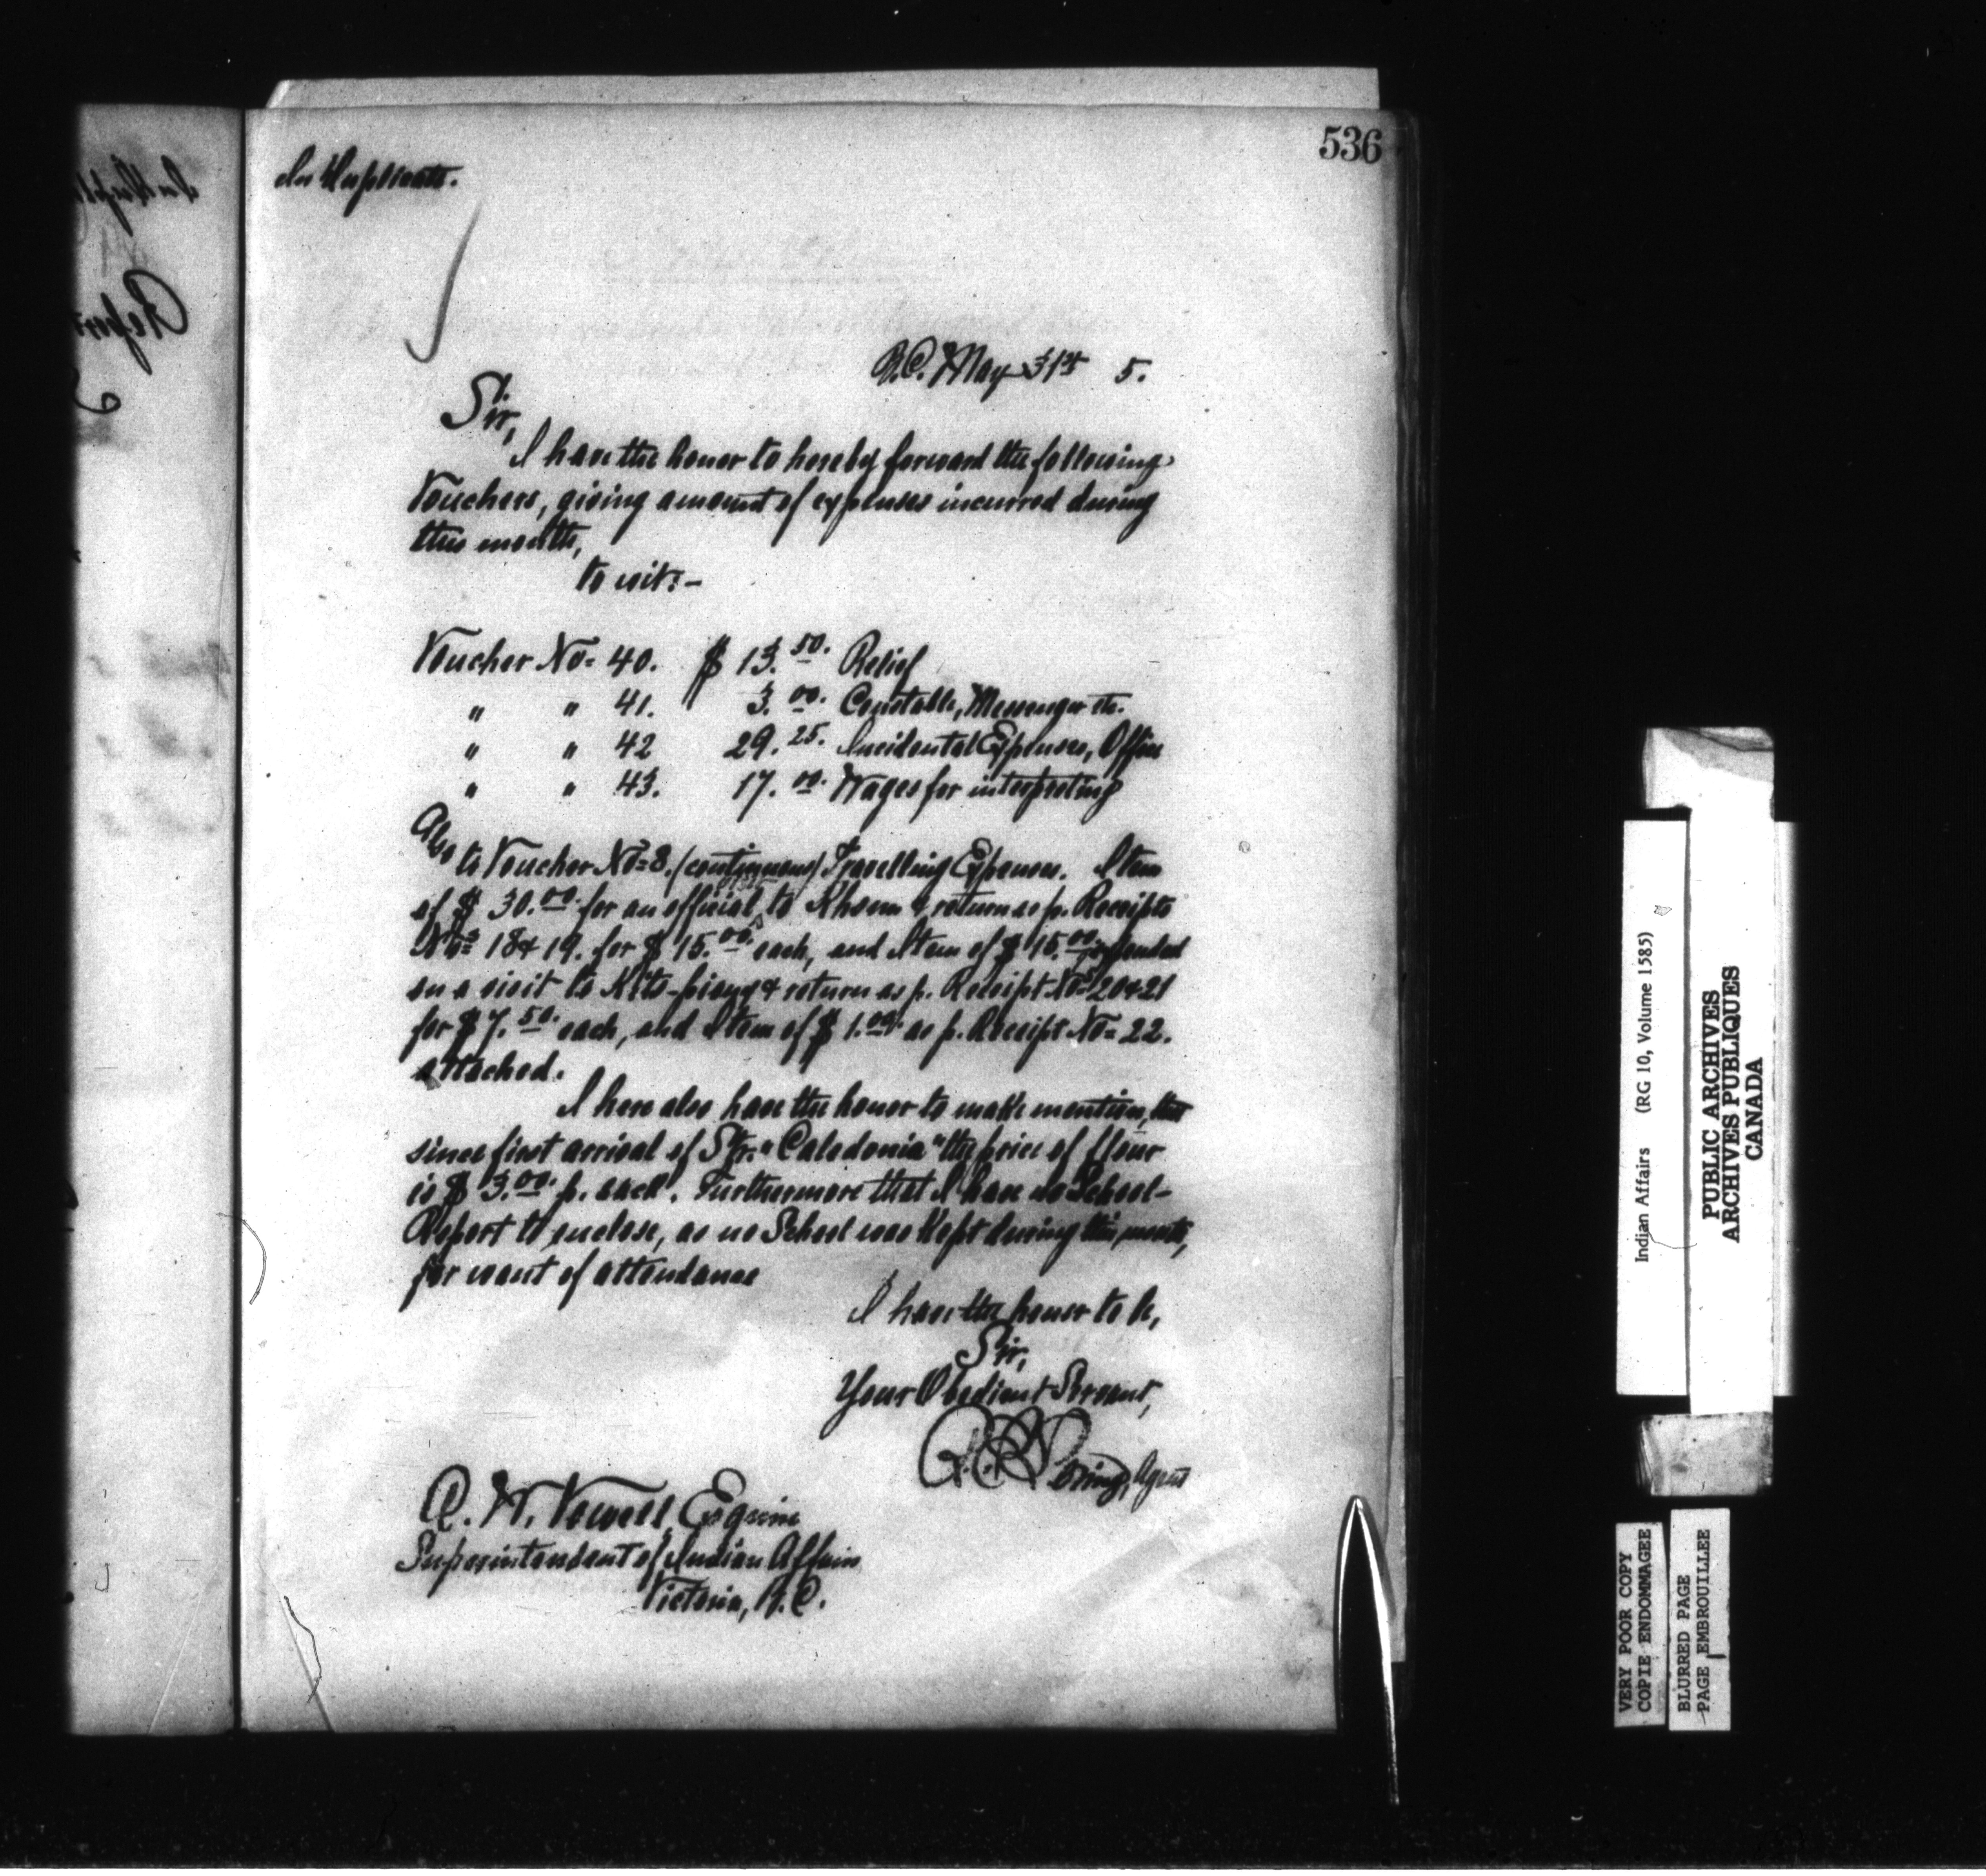 536
In Duplicate.
B.C. May 31st 5.
Sir,
I have the honor to hereby forward the following
Vouchers, giving amount of expenses incurred during
this month,
to wit:-
Voucher No= 40. $ 13.50. Relief
" " 41. 3.00. Constable, Messenger etc.
" " 42 29.25. Incidental Expenses, Office
" " 43. 17.00. Wages for interpreting
Also to Voucher No= 8. (continuous) Travelling Expenses. Item
of $ 30.00. for an official to & return as p. Receipts
Nos 18 & 19. for $ 15.00. each, and Item of $ 15.00. expended
on a visit to & return as p. Receipt Nos 20 & 21
for $ 7.50. each, and Item of $ 1.00. as p. Receipt No= 22.
attached.
I here also have the honor to make mention, that
since first arrival of Str. "Caledonia" the price of flour
is $ 3.00. p. sack. Furthermore that I have no School-
Report to enclose, as no School was kept during this month,
for want of attendance
I have the honor to be,
Sir,
Your Obedient Servant,
Loring, Agent
A. W. Vowell, Esquire
Superintendent of Indian Affairs
Victoria, B.C.
Indian Affairs (RG 10, Volume 1585)
PUBLIC ARCHIVES
ARCHIVES PUBLIQUES
CANADA
VERY POOR COPY
COPIE ENDOMMAGEE
BLURRED PAGE
PAGE EMBROUILLEE